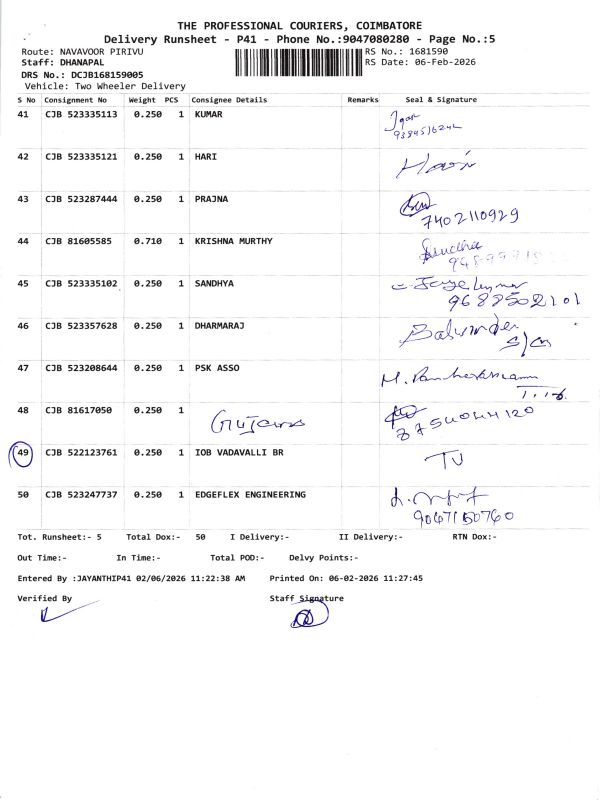 THE PROFESSIONAL COURIERS, COIMBATORE
Delivery Runsheet - P41 - Phone No.:9047080280 - Page No.:5
Route: NAVAVOOR PIRIVU RS No.: 1681590
Staff: DHANAPAL RS Date: 06-Feb-2026
DRS No.: DCJB168159005
Vehicle: Two Wheeler Delivery
S No Consignment No Weight PCS Consignee Details Remarks Seal & Signature
41 CJB 523335113 0.250 1 KUMAR
42 CJB 523335121 0.250 1 HARI Hari
43 CJB 523287444 0.250 1 PRAJNA
7402110929
44 CJB 81605585 0.710 1 KRISHNA MURTHY Sudha
45 CJB 523335102 0.250 1 SANDHYA
9688502101
46 CJB 523357628 0.250 1 DHARMARAJ
47 CJB 523208644 0.250 1 PSK ASSO
48 CJB 81617050 0.250 1
8754044120
49 CJB 522123761 0.250 1 IOB VADAVALLI BR TV
50 CJB 523247737 0.250 1 EDGEFLEX ENGINEERING
Tot. Runsheet:- 5 Total Dox:- 50 I Delivery:- II Delivery:- RTN Dox:-
Out Time:- In Time:- Total POD:- Delvy Points:-
Entered By :JAYANTHIP41 02/06/2026 11:22:38 AM Printed On: 06-02-2026 11:27:45
Verified By Staff Signature